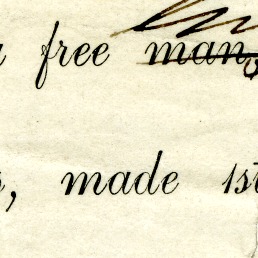 free man,
, made 1st